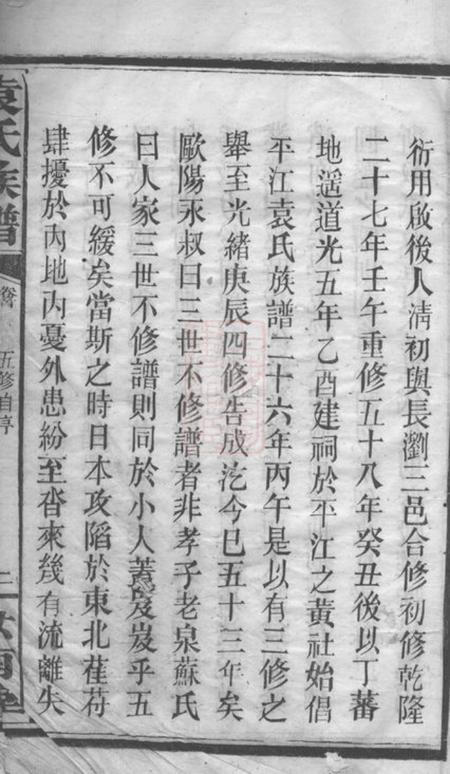 衍用啟後人淸初與長瀏三邑合修初修乾隆
二十七年壬午重修五十八年癸丑後以丁蕃
地遥道光五年乙酉建祠於平江之黄社始倡
平江袁氏族譜二十六年丙午是以有三修之
舉至光緒庚辰四修告成迄今已五十三年矣
歐陽永叔曰三世不修譜者非孝子老泉蘇氏
曰人家三世不修譜則同於小人蓋岌岌乎五
修不可緩矣當斯之時日本攻陷於東北萑苻
肆擾於内地内憂外患紛至沓來幾有流離失
袁氏族譜
卷 五修自序
二